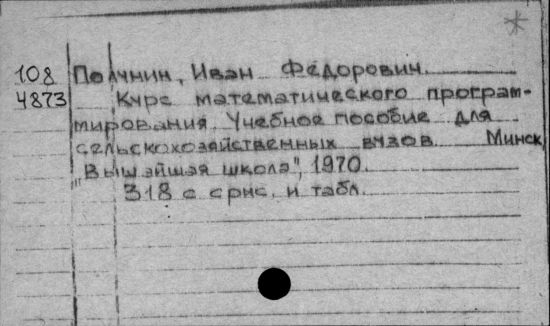 108 Полунин, Иван Федорович.
4873 Курс математического програм-
мирования. Учебное пособие для
сельскохозяйственных вузов. Минск,
"Вышэйшая школа", 1970.
318 с. с рис. и табл.